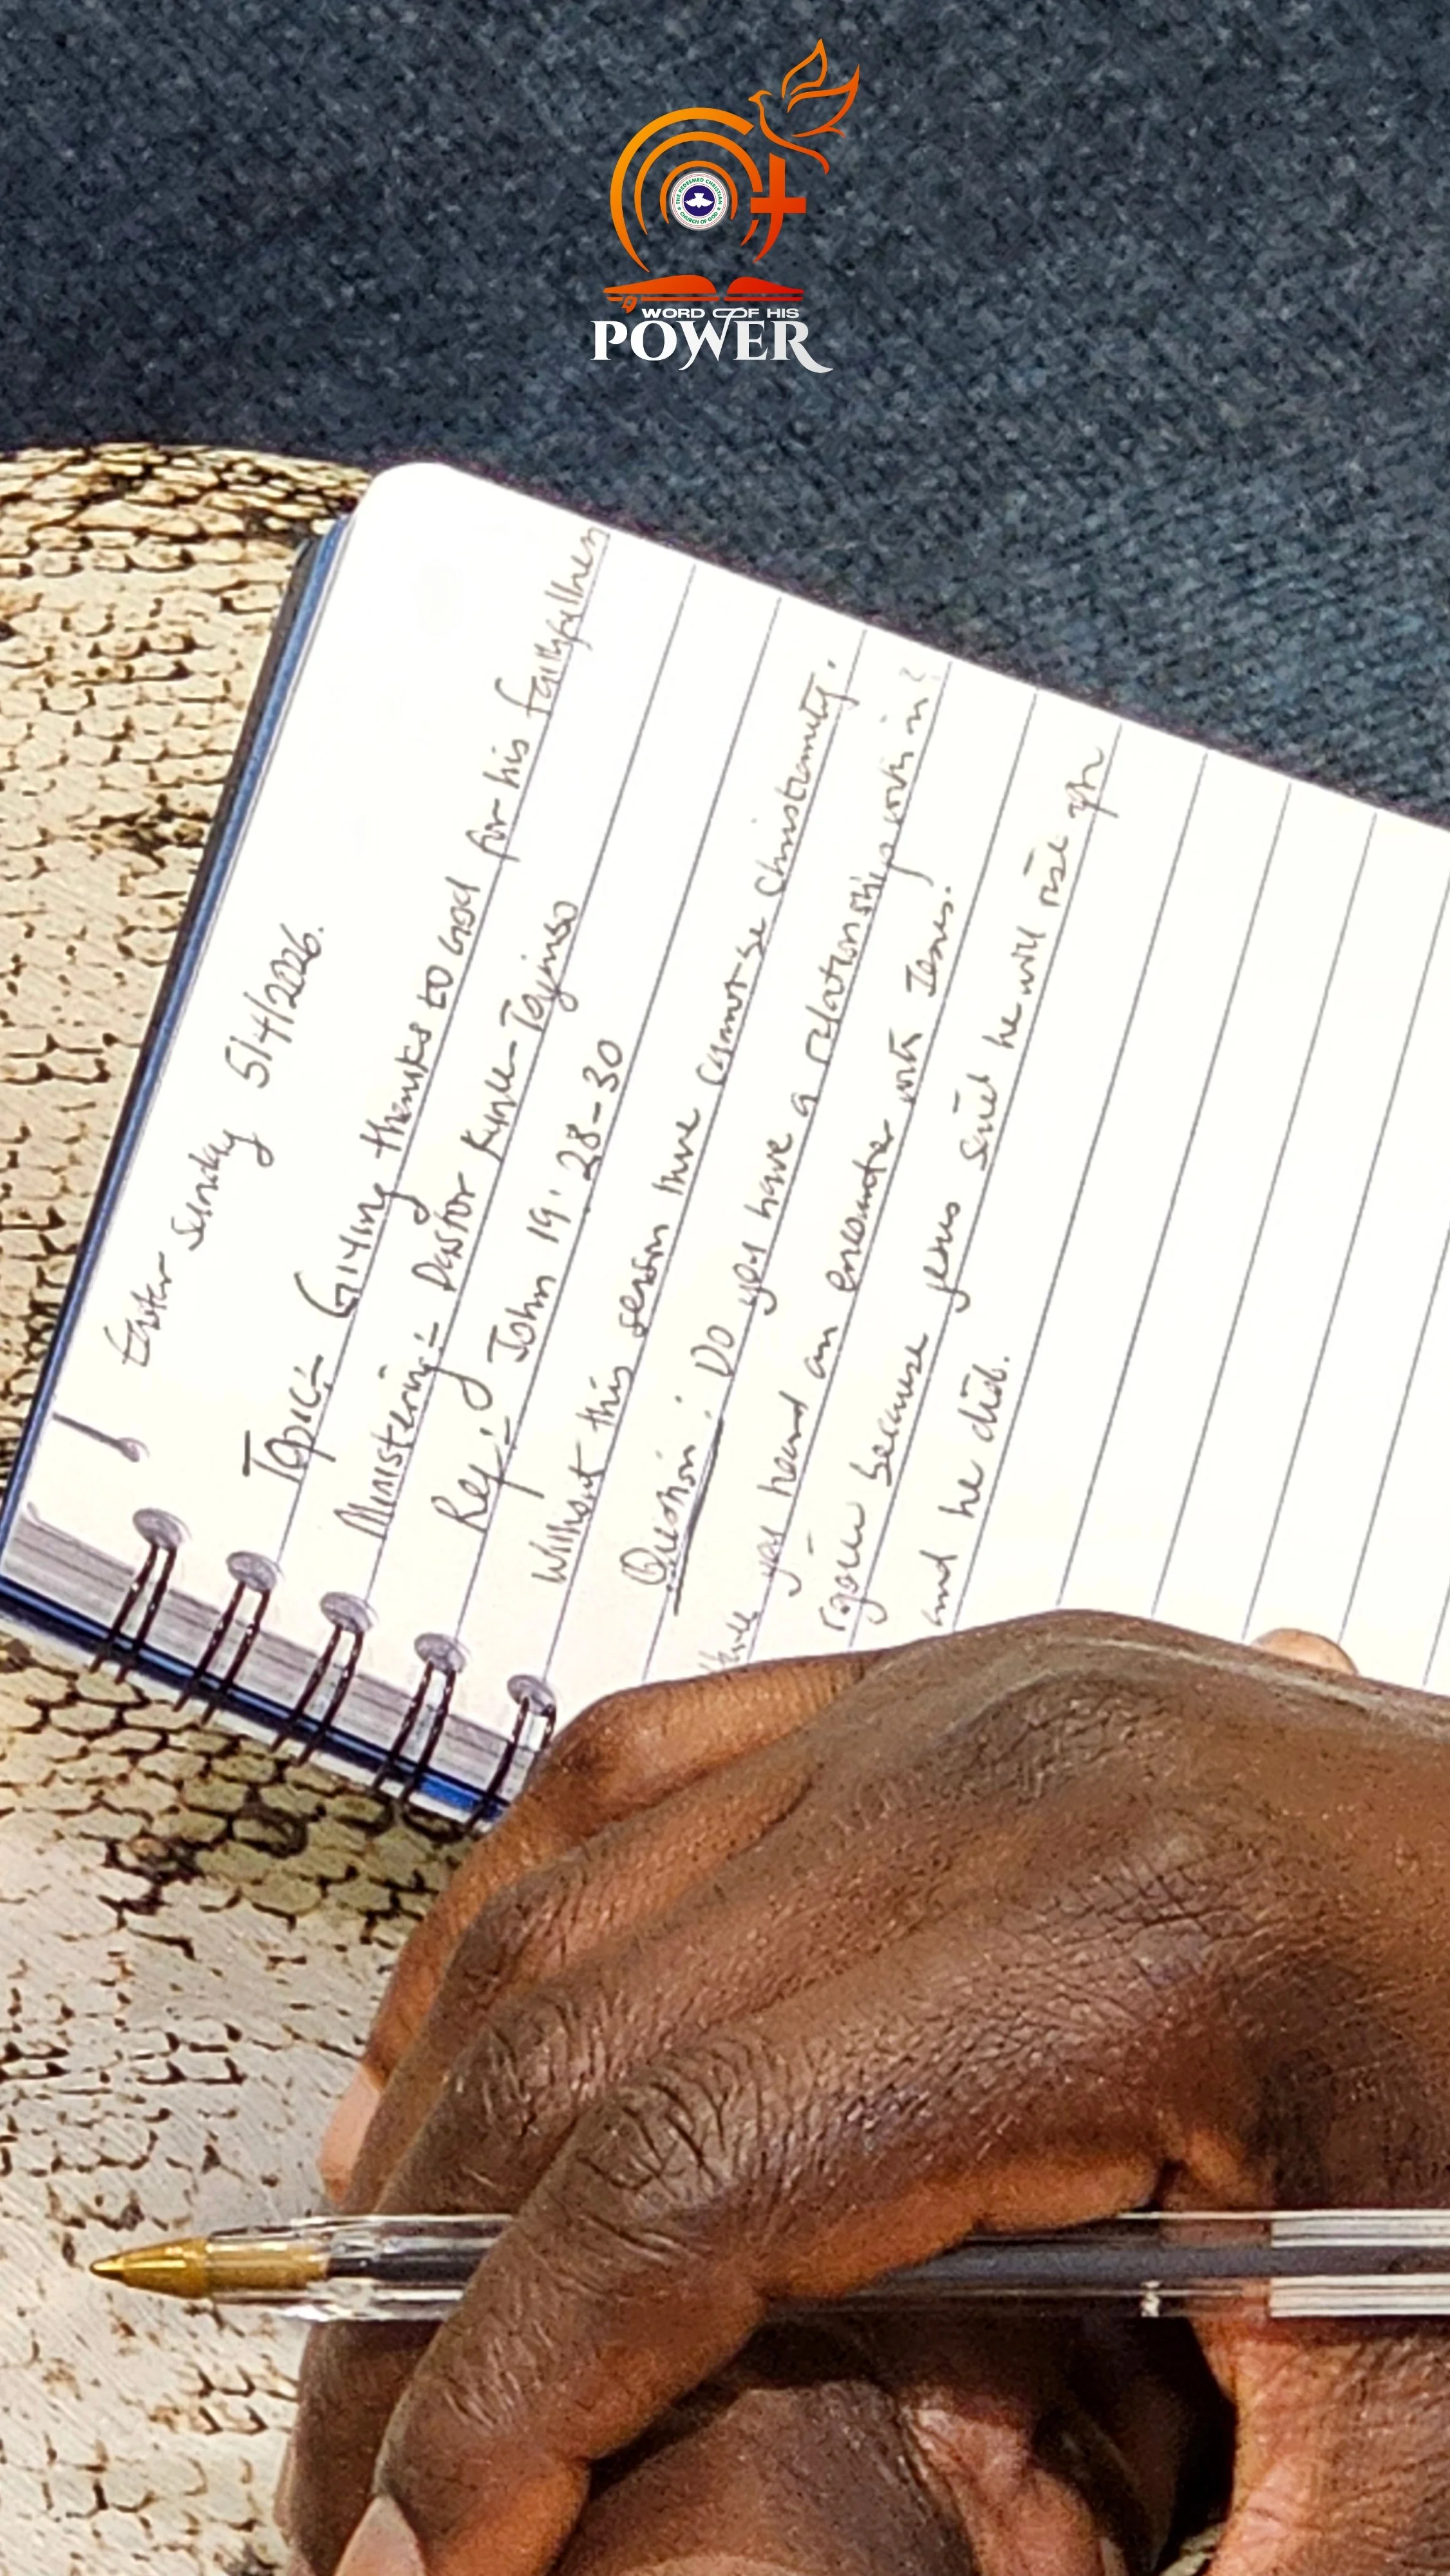 THE REDEEMED CHRISTIAN
CHURCH OF GOD
WORD OF HIS
POWER
Easter Sunday 5/4/2026.
Topic:- Giving thanks to God for his faithfulness
Ministering:- Pastor Kunle-Tayinso
Rey:- John 19:28-30
Without this season there cannot be Christianity.
Question: Do you have a relationship with him?
Have you heard an encounter with Jesus.
because Jesus said he will rise
and he did.